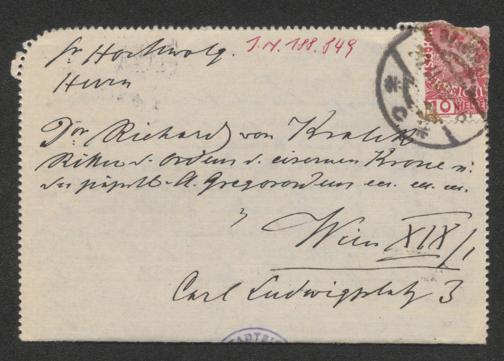 Sr Hochwolg. I.N. 188.849
Herrn
Dr Richard von Kralik
Ritter d. Ordens d. eisernen Krone u.
des päpstl. St. Gregorordens etc. etc. etc.
Wien XIX/1
Carl Ludwigplatz 3
10